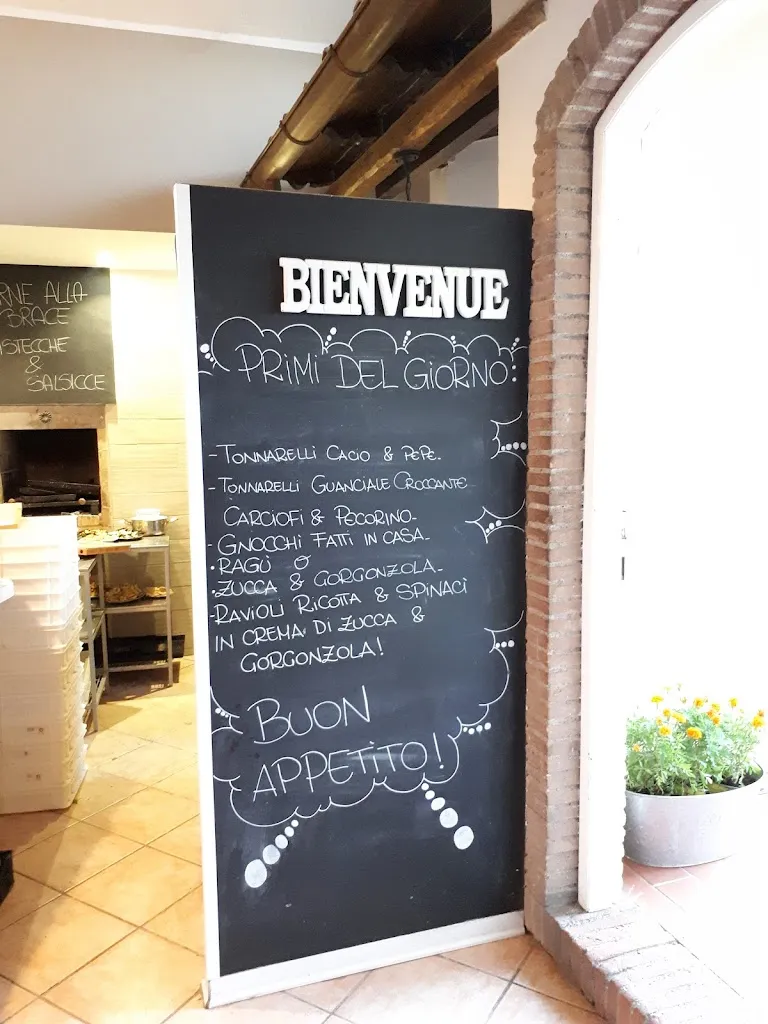 ALLA
BRACE
&
SALSICCE
BIENVENUE
PRIMI DEL GIORNO:
- TONNARELLI CACIO & PEPE.
- TONNARELLI GUANCIALE CROCCANTE
CARCIOFI & PECORINO.
- GNOCCHI FATTI IN CASA.
• RAGÙ O
• ZUCCA & GORGONZOLA.
- RAVIOLI RICOTTA & SPINACI
IN CREMA DI ZUCCA &
GORGONZOLA!
BUON
APPETITO!